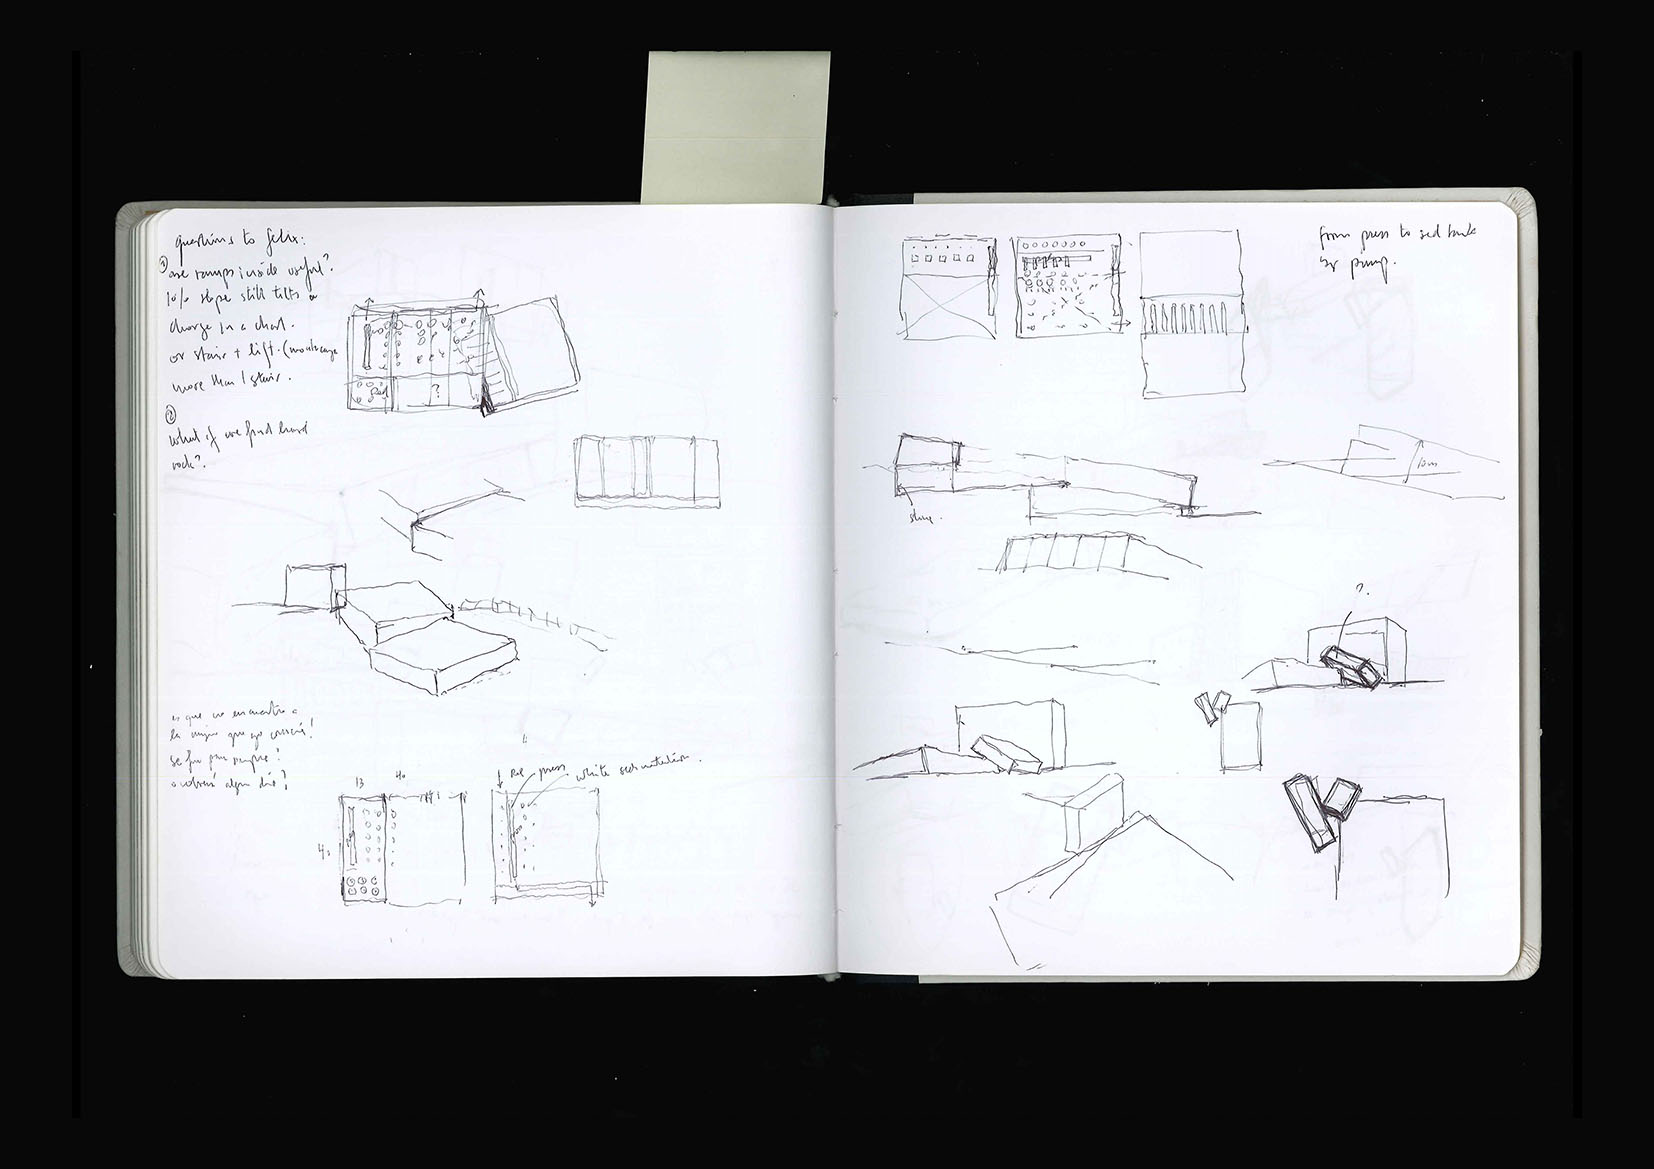 questions to felix:
① are ramps inside useful?
10% slope still tilts a
charge in a chart.
or stair + lift. (montecarge
more than 1 stair.
②
what if we find hard
rock?.
Red
?
es que no encuentro a
la mujer que yo
se fue para siempre?
o volverá algun día?
13
40
40
Red
press
white sedimentation.
from press to sed tank
by pump.
10m
?.